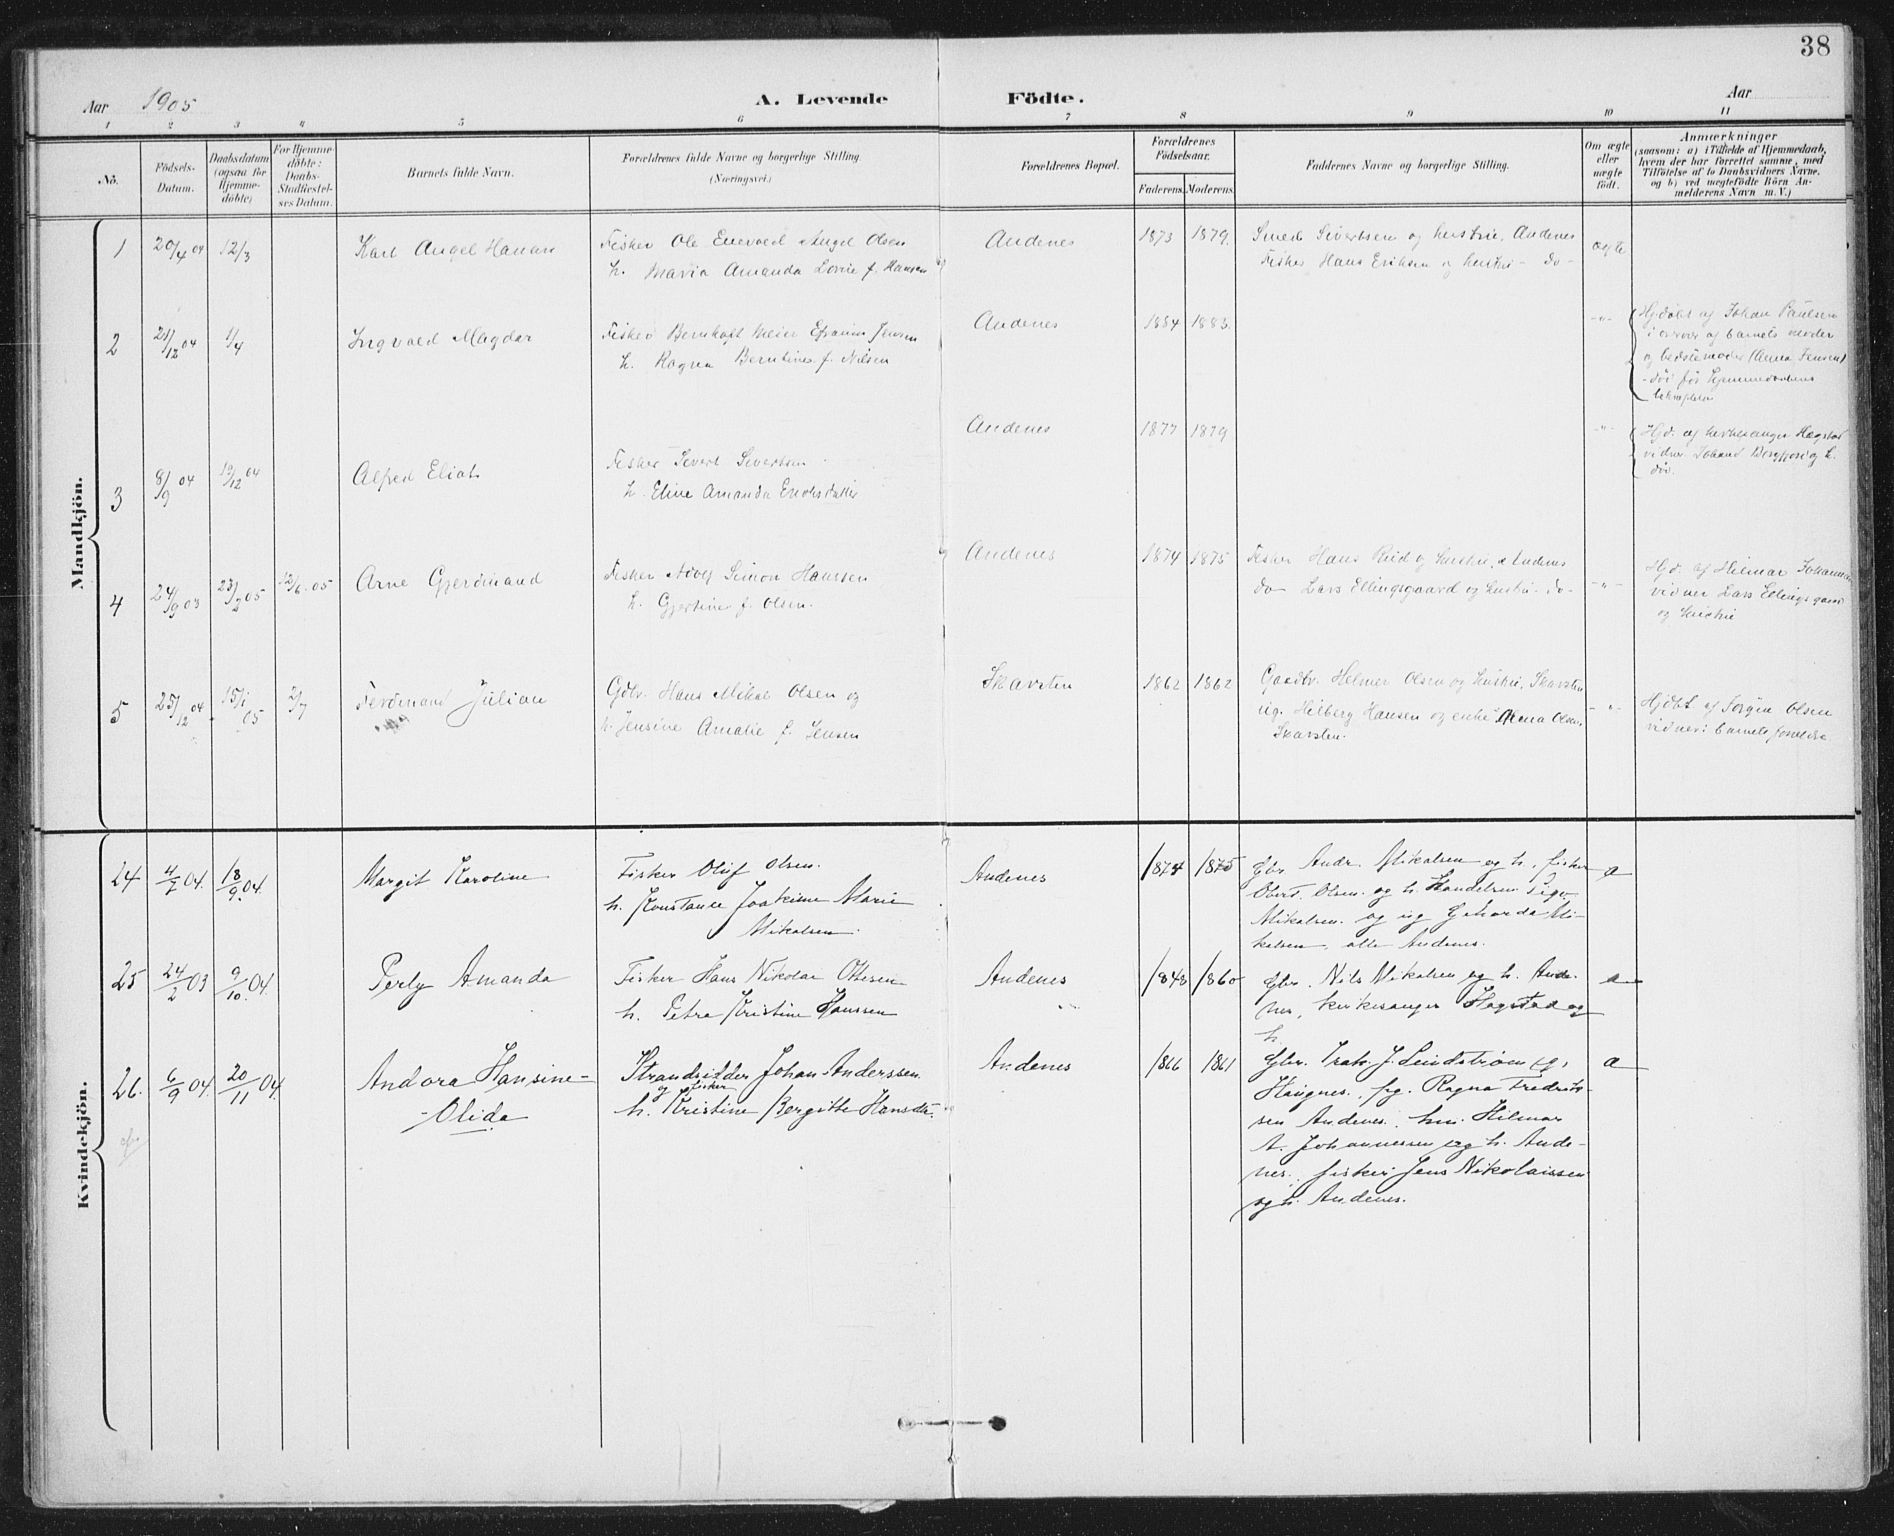 38
Aar 1905
A. Levende Födte.
Aar
1 2 3 4 5 6 7 8 9 10 11
No.
Födsels-
Datum.
Daabsdatum
(ogsaa for
Hjemme-
döbte)
For Hjemme-
döbte:
Daabs-
Stadfæstel-
ses Datum.
Barnets fulde Navn.
Forældrenes fulde Navne og borgerlige Stilling.
(Næringsvei.)
Forældrenes Bopæl.
Forældrenes
Födselsaar.
Faderens. Moderens.
Faddernes Navne og borgerlige Stilling.
Om ægte
eller
uægte
födt.
Anmærkninger
(saasom: a) i Tilfælde af Hjemmedaab,
hvem der har forrettet samme, med
Tilföielse af to Daabsvidners Navne,
og b) ved uægtefödte Börn An-
melderens Navn m. V.)
Mandkjön.
1 20/4 04 12/3 Karl Angel Hanan
Fisker Ole Enevold Angel Olsen
h. Maria Amanda Lovise f. Hansen
Andenes 1873 1879.
Smed Sivertsen og hustru, Andenes
Fisker Hans Eriksen og hustru - do-
ægte
2 21/12 04 1/4 Ingvald Magdar
Fisker Bernhoft Meier Efraim Jensen
h. Ragna Berntine f. Nilsen
Andenes 1884 1883. -"-
Hjdøbt af Johan Paulsen
i overvær af barnets moder
og bedstemoder Jensen
død før hjemmedaabens
bekræftelse
3 8/9 04 19/12 04 Alfred Eliot
Fisker Sivert Sivertsen
h. Eline Amanda Enoksdatter
Andenes 1877 1879 -"-
Hjd. af kirkesanger Hegstad
vidner Johan og h.
død.
4 24/9 03 23/2 05 12/6. 05 Arne Gjerdinand
Fisker Adolf Simon Hanssen
h. Gjertine f. Olsen.
Andenes 1874 1875
Fisker Hans Riid og hustru, Andenes
do Lars Ellingsgaard og hustru - do-
-"-
Hjd. af Hilmar Johannesen
vidner Lars Ellingsgaard
og hustru
5 25/12 04 15/1 05 2/7 Ferdinand Julian
Gdbr. Hans Mikal Olsen og
h. Jensine Amalie f. Jensen
Skarsten 1862 1862
Gaardbr. Helmer Olsen og hustru, Skarsten
ug. Heiberg Hansen og enke Olsen,
Skarsten.
-"-
Hjdbt af Jørgine Olsen
vidner: barnets foreldre
Kvindekjön.
24 4/7 04. 18/9 04. Margit Karoline
Fisker Oluf Olsen.
h. Konstance Joakime Marie
Mikalsen.
Andenes 1874 1875
Gbr. Andr. Mikalsen og h. fisker
Obert Olsen og h. Handelsm. Pigo
Mikalsen. og ug Gerharda Mi-
kalsen, alle Andenes.
a
25 24/2 03 9/10 04. Perly Amanda
Fisker Hans Nikolai Ottesen
h. Petra Kristine Hanssen
Andenes 1848 1860
Gbr. Nils Mikalsen og h. Ande-
nes, kirkesanger Hegstad og
h.
a
26. 6/9 04. 20/11 04. Andora Hansine-
-Olida
Strandsidder Johan Anderssen
og fisker
h. Kristine Bergitte Hansdtr.
Andenes 1866 1861
Gbr. J. Lindstrøm og,
Haugnes. frg. Ragna Fredrik-
sen Andenes. hm. Hilmar
A. Johannessen og h. Ande-
nes. fisker Jens Nikolaissen
og h. Andenes.
a